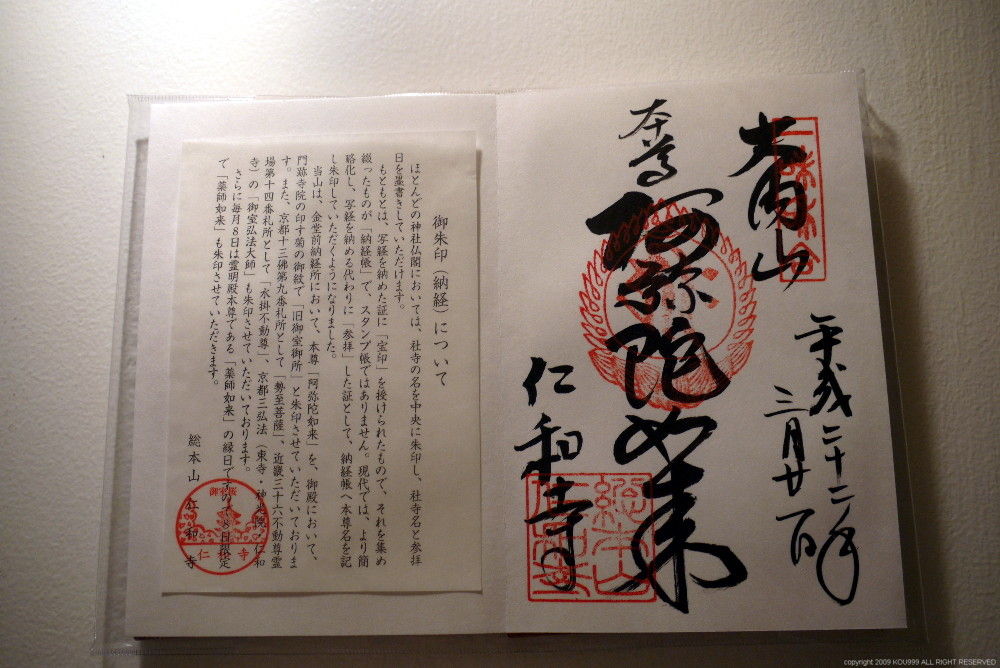 大内山
平成二十二年
三月廿一日
本尊
阿弥陀如来
仁和寺
御朱印（納経）について
ほとんどの神社仏閣においては、社寺の名を中央に朱印し、社寺名と参拝
日を墨書きしていただけます。
もともとは、写経を納めた証に「宝印」を授けられたもので、それを集め
綴ったものが「納経帳」で、スタンプ帳ではありません。現代では、より簡
略化し、写経を納める代わりに「参拝」した証として、納経帳へ本尊名を記
し朱印していただくようになりました。
当山は、金堂前納経所において、本尊「阿弥陀如来」を、御殿において、
門跡寺院の印す菊の御紋で「旧御室御所」と朱印させていただいておりま
す。また、京都十三佛第九番札所として「勢至菩薩」、近畿三十六不動尊霊
場第十四番札所として「水掛不動尊」、京都三弘法（東寺・神光院・仁和
寺）の「御室弘法大師」も朱印させていただいております。
さらに毎月8日は霊明殿本尊である「薬師如来」の縁日ですので8日限定
で「薬師如来」も朱印させていただきます。
総本山 仁和寺
御室桜
仁和寺
copyright 2009 KOU999 ALL RIGHT RESERVED